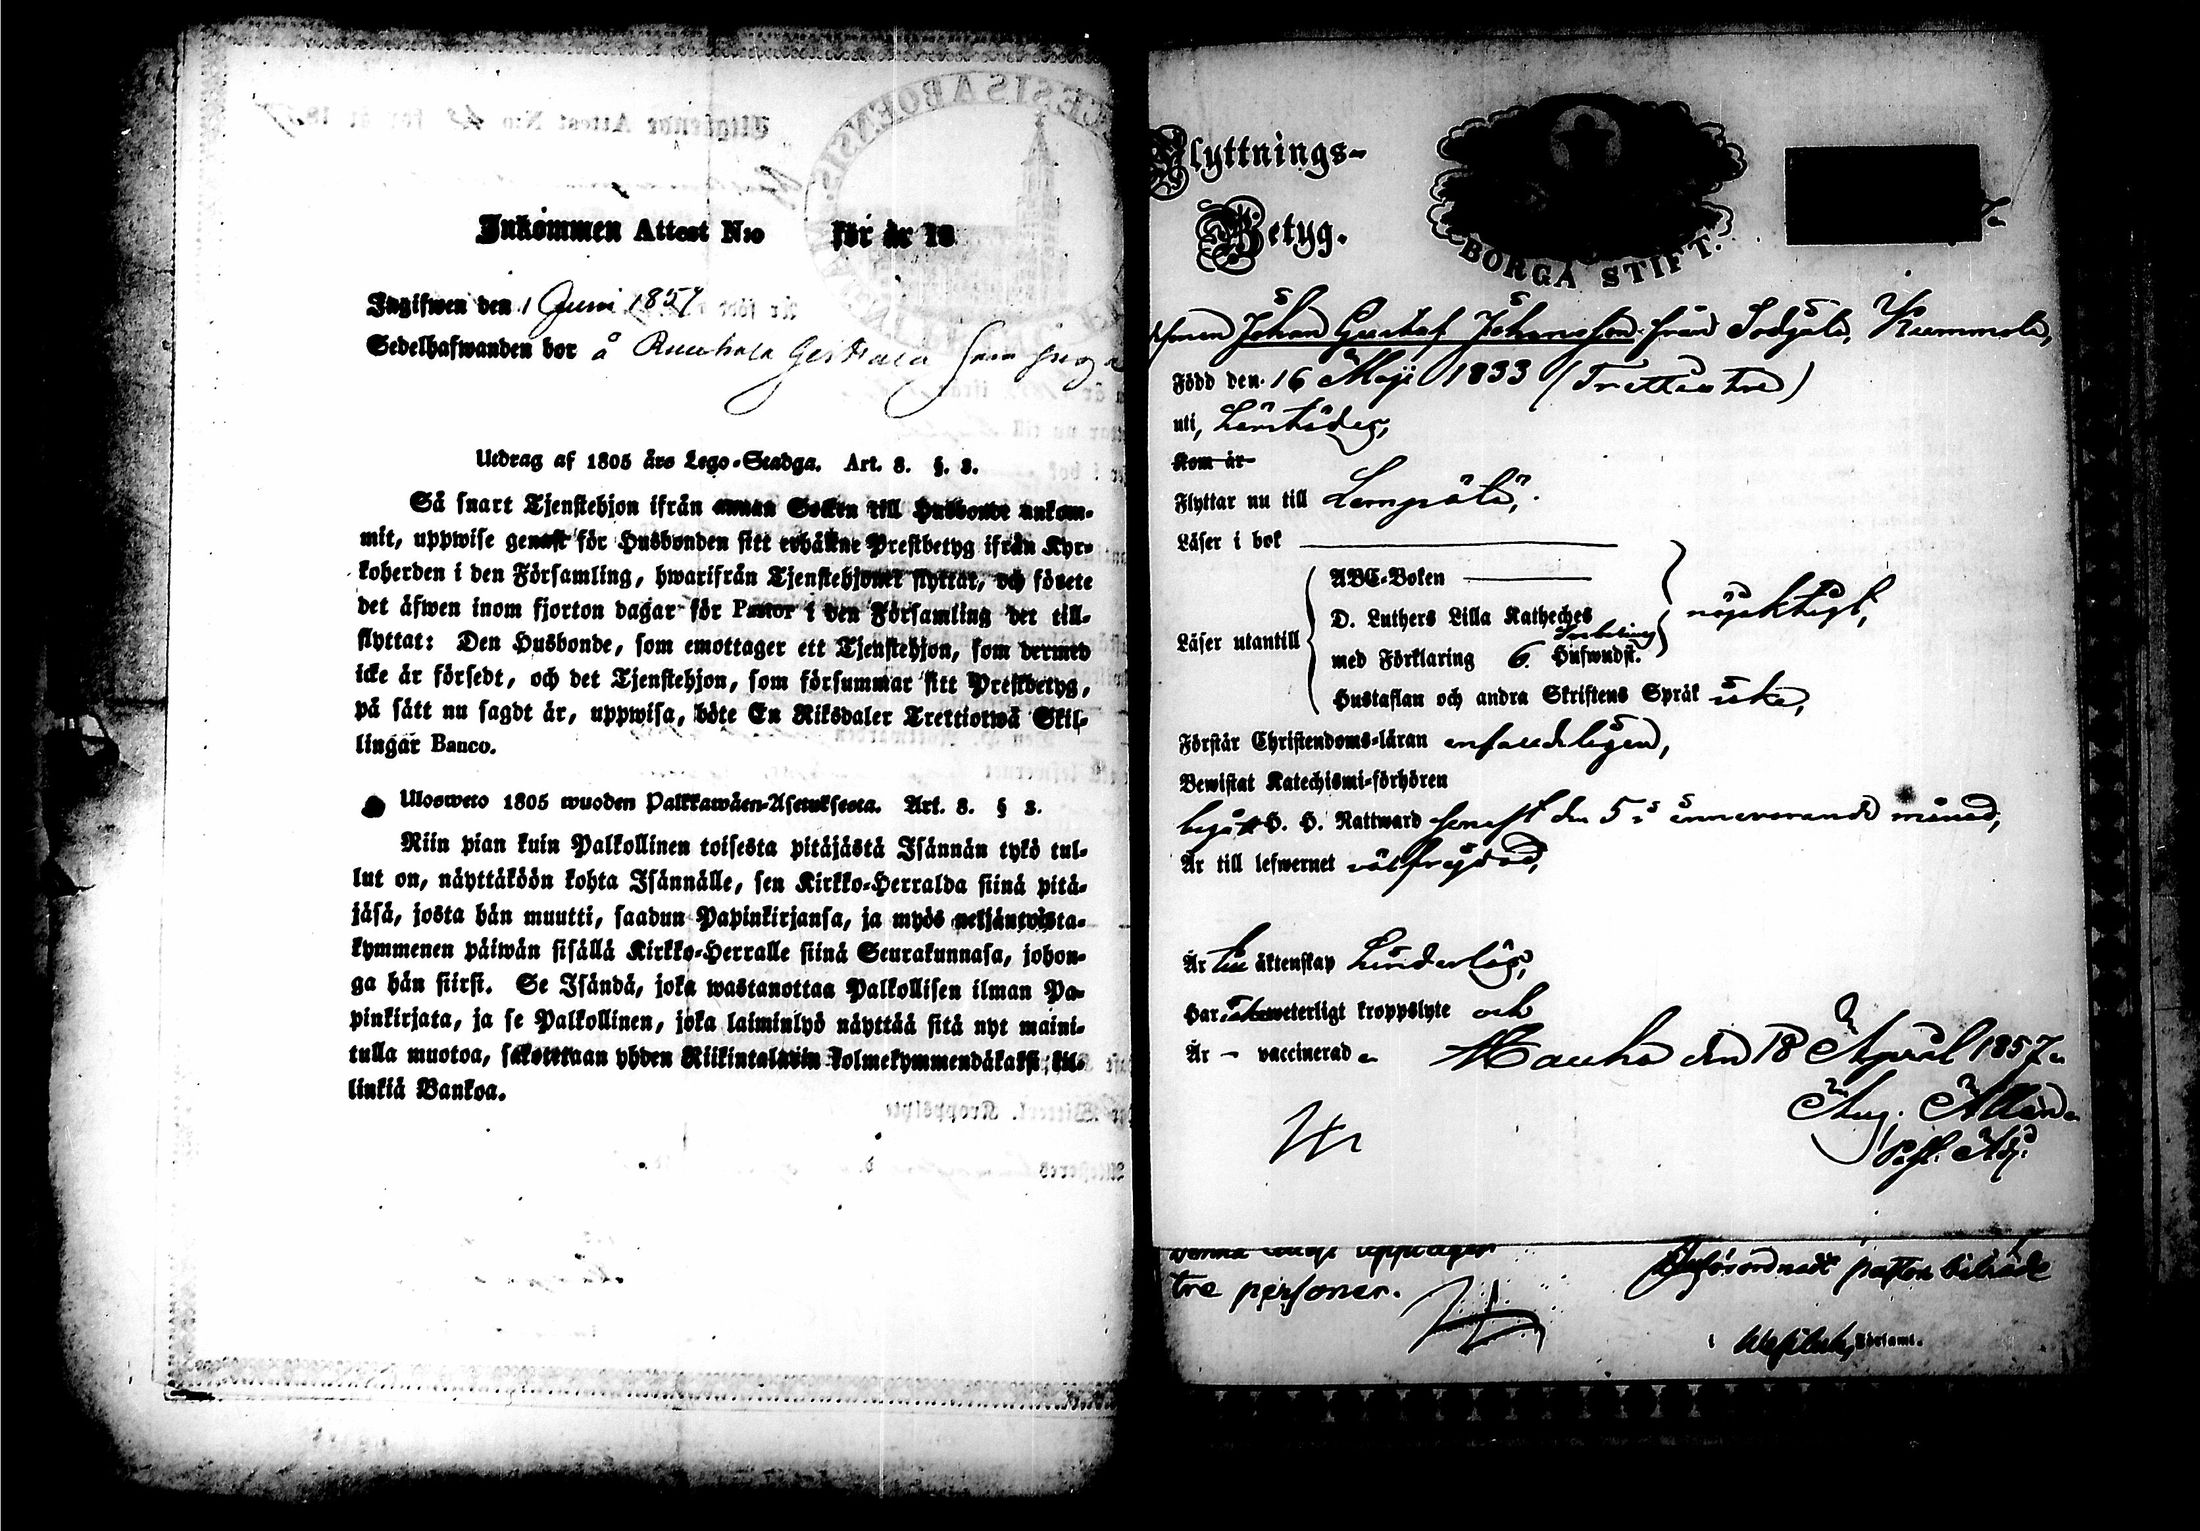 Inkommen Attest N:o för år 18
Ingifwen den 1 Juni 1857
Sedelhafwanden bor å
Utdrag af 1805 års Lego-Stadga. Art. 8. §. 3.
Så snart Tjenstehjon ifrån annan Socken till Husbonde ankom-
mit, uppwise genast för Husbonden sitt erhållne Prestbetyg ifrån Kyr-
koherden i den Församling, hwarifrån Tjenstehjonet flyttat, och förete
det äfwen inom fjorton dagar för Pastor i den Församling det till-
flyttat: Den Husbonde, som emottager ett Tjenstehjon, som dermed
icke är försedt, och det Tjenstehjon, som försummar sitt Prestbetyg,
på sätt nu sagdt är, uppwisa, böte En Riksdaler Trettiotwå Skil-
lingar Banco.
Ulosweto 1805 wuoden Palkkawäen-Asetuksesta. Art. 8. § 3.
Niin pian kuin Palkollinen toisesta pitäjästä Isännän tykö tul-
lut on, näyttäköön kohta Isännälle, sen Kirkko-Herralda siinä pitä-
jäsä, josta hän muutti, saadun Papinkirjansa, ja myös neljäntoista-
kymmenen päiwän sisällä Kirkko-Herralle siinä Seurakunnasa, johon-
ga hän siirsi. Se Isändä, joka wastanottaa Palkollisen ilman Pa-
pinkirjata, ja se Palkollinen, joka laiminlyö näyttää sitä nyt maini-
tulla muotoa, sakotetaan yhden Riikintalarin kolmekymmendäkaksi kil-
linkiä Bankoa.
Flyttnings-
Betyg.
BORGÅ STIFT.
Johan Gustaf Johansson från Sodjala, Kummola,
Född den 16 Maji 1833 (Trettiotre)
uti,
Kom år
Flyttar nu till Lempälä,
Läser i bok
ABC-Boken
D. Luthers Lilla Katheches
Läser utantill nöjaktigt,
med Förklaring 6. Hufwudst.
Hustaflan och andra Skriftens Språk icke,
Förstår Christendoms-läran enfaldeligen,
Bewistat Katechismi-förhören
begått H. H. Nattward senast den 5 i innevarande månad,
Är till lefwernet välfrejdad,
Är till äktenskap hinderlös,
Har icke weterligt kroppslyte och
Är vaccinerad. Hauho den 18 April 1857.
Aug. Allén
Past. Adj.
Denna uppläger
tre personer. förordnadt pastors biträde
i Kyrkslätt,